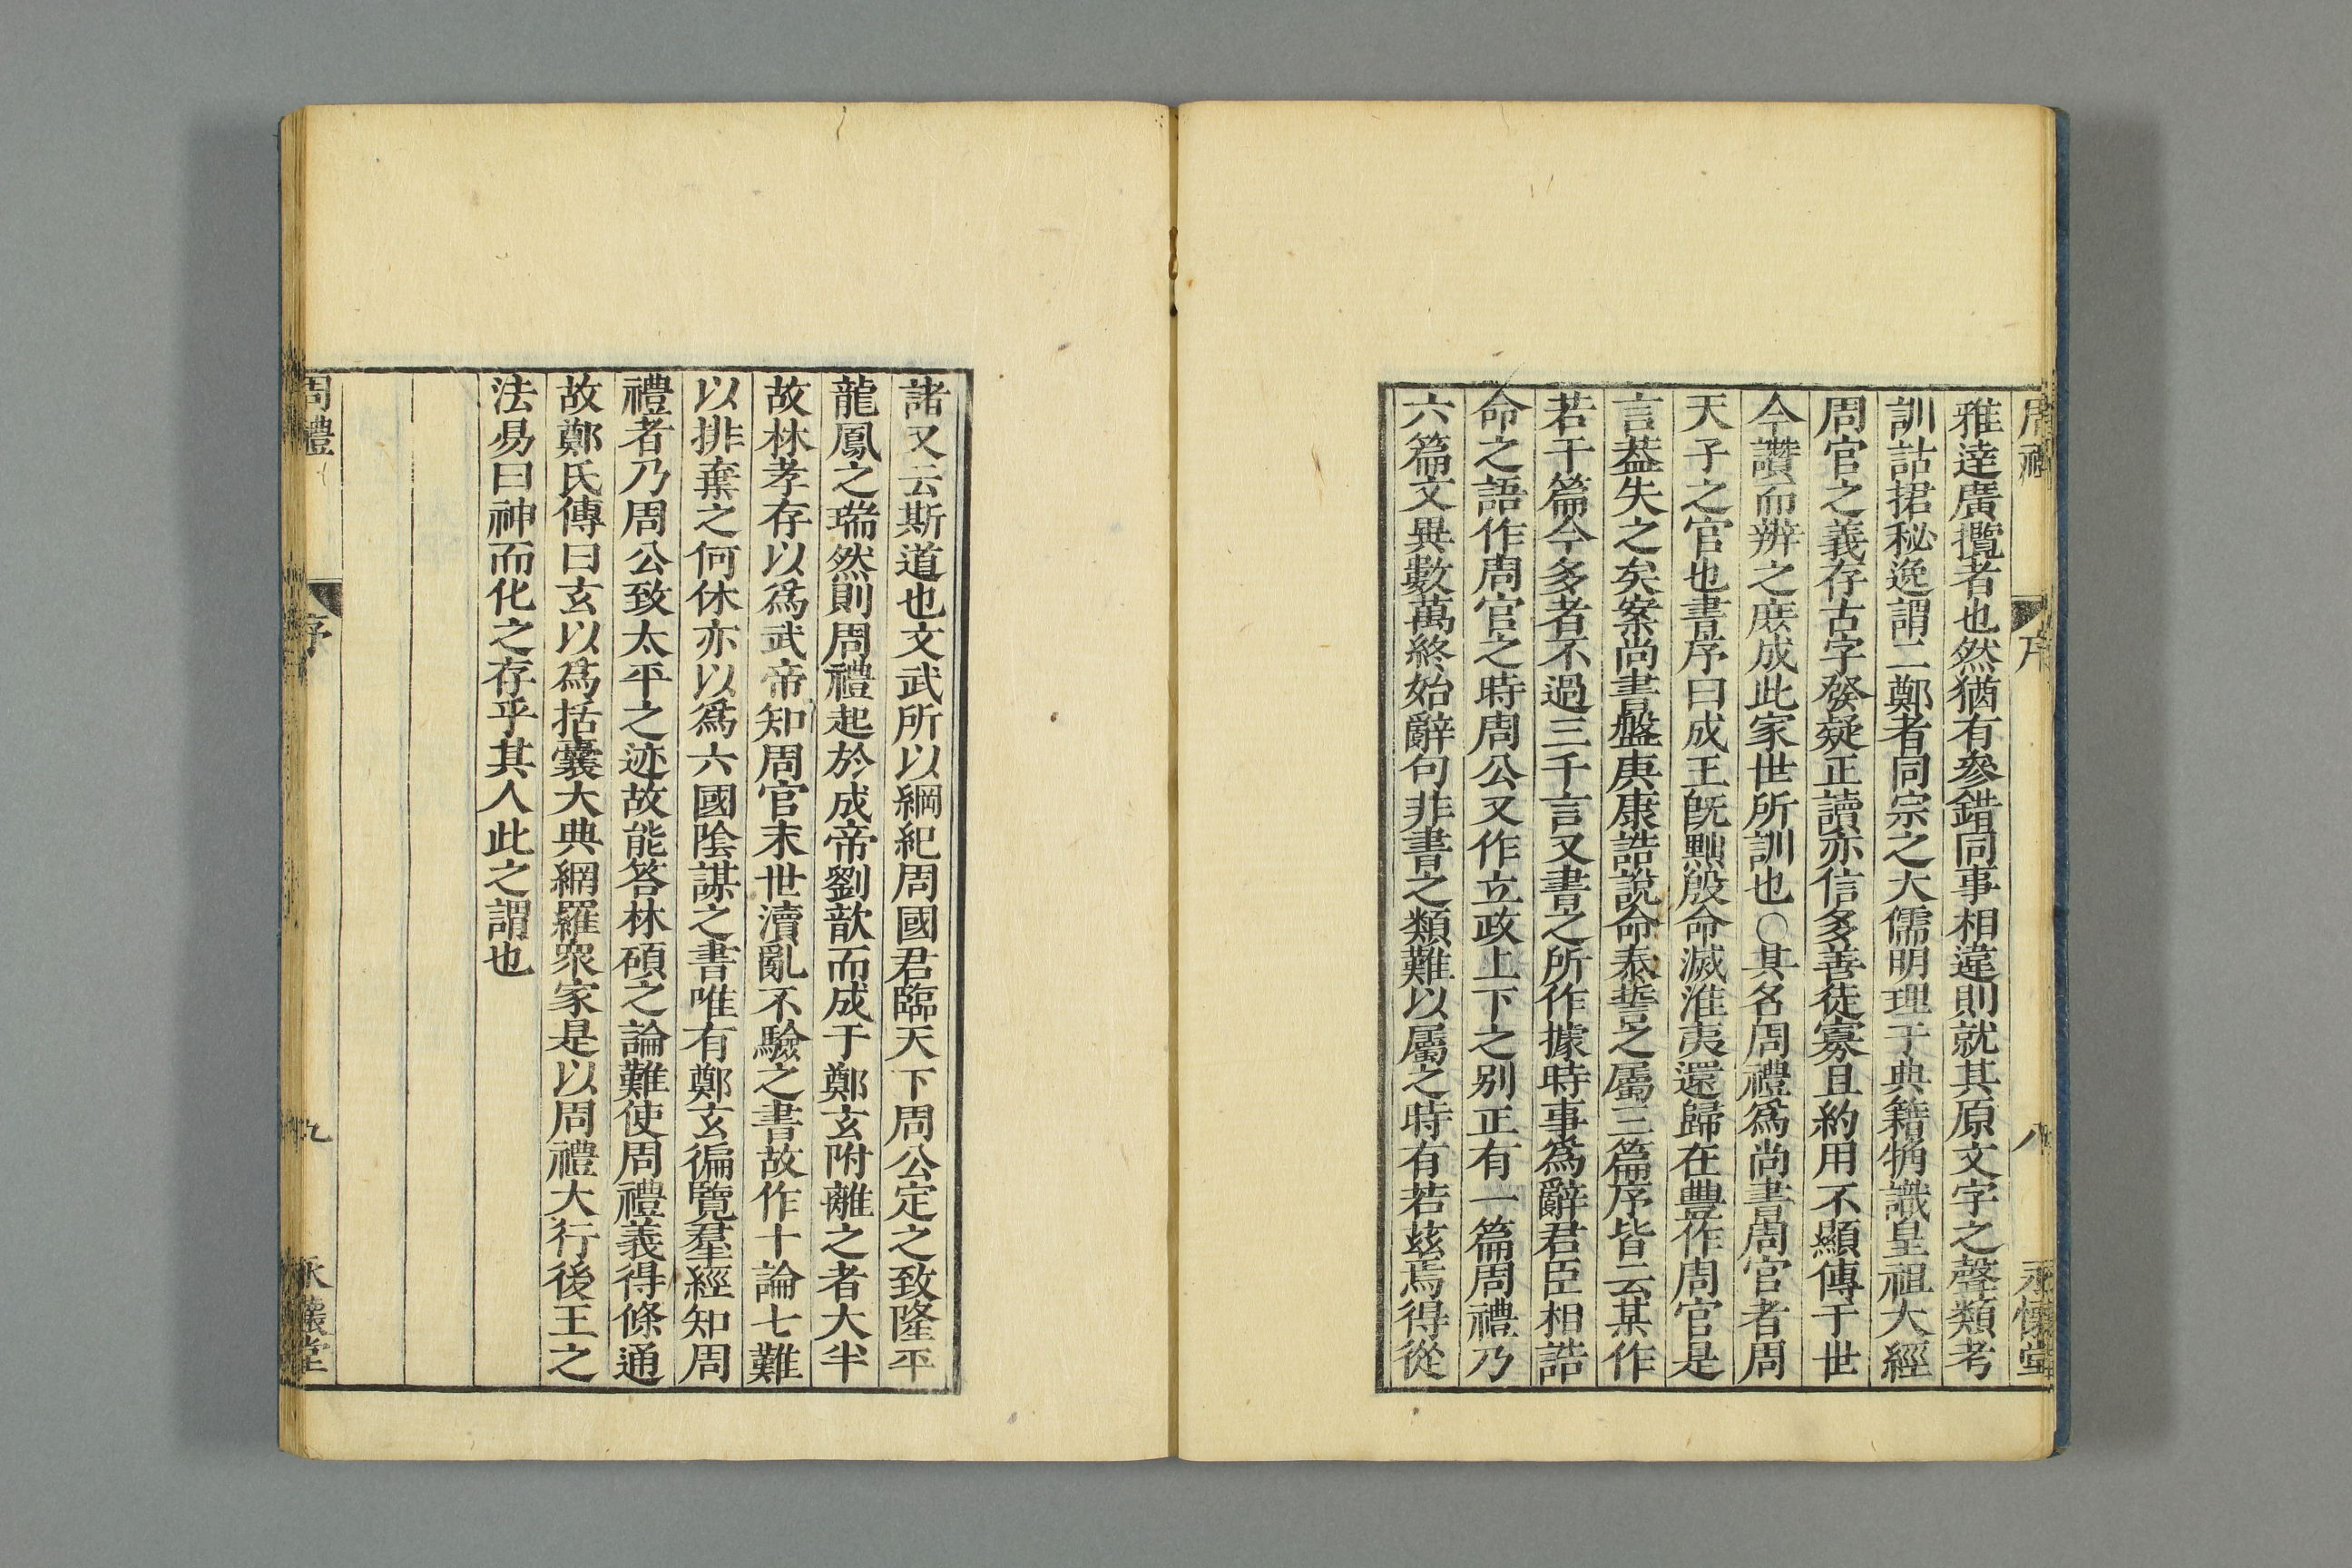 周禮 序 八 永懷堂
雅達廣攬者也然猶有參錯同事相違則就其原文字之聲類考
訓詁捃秘逸謂二鄭者同宗之大儒明理于典籍觕識皇祖大經
周官之義存古字發疑正讀亦信多善徒寡且約用不顯傳于世
今讚而辨之庶成此家世所訓也○其名周禮爲尚書周官者周
天子之官也書序曰成王旣黜殷命滅淮夷還歸在豐作周官是
言葢失之矣案尚書盤庚康誥說命泰誓之屬三篇序皆云某作
若干篇今多者不過三千言又書之所作據時事爲辭君臣相誥
命之語作周官之時周公又作立政上下之别正有一篇周禮乃
六篇文異數萬終始辭句非書之類難以屬之時有若兹焉得從
諸又云斯道也文武所以綱紀周國君臨天下周公定之致隆平
龍鳳之瑞然則周禮起於成帝劉歆而成于鄭玄附離之者大半
故林孝存以爲武帝知周官末世瀆亂不驗之書故作十論七難
以排棄之何休亦以爲六國陰謀之書唯有鄭玄徧覽羣經知周
禮者乃周公致太平之迹故能答林碩之論難使周禮義得條通
故鄭氏傳曰玄以爲括囊大典網羅衆家是以周禮大行後王之
法易曰神而化之存乎其人此之謂也
周禮 序 九 永懷堂